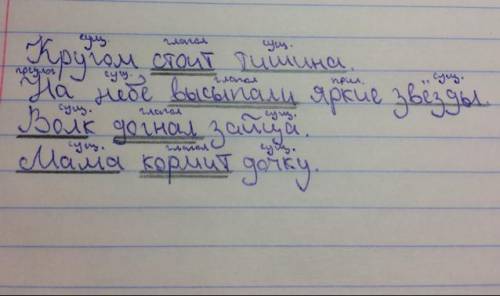 сущ. глагол сущ.
Кругом стоит тишина.
предлог сущ. глагол прил. сущ.
На небе высыпали яркие звёзды.
сущ. глагол сущ.
Волк догнал зайца.
сущ. глагол сущ.
Мама кормит дочку.